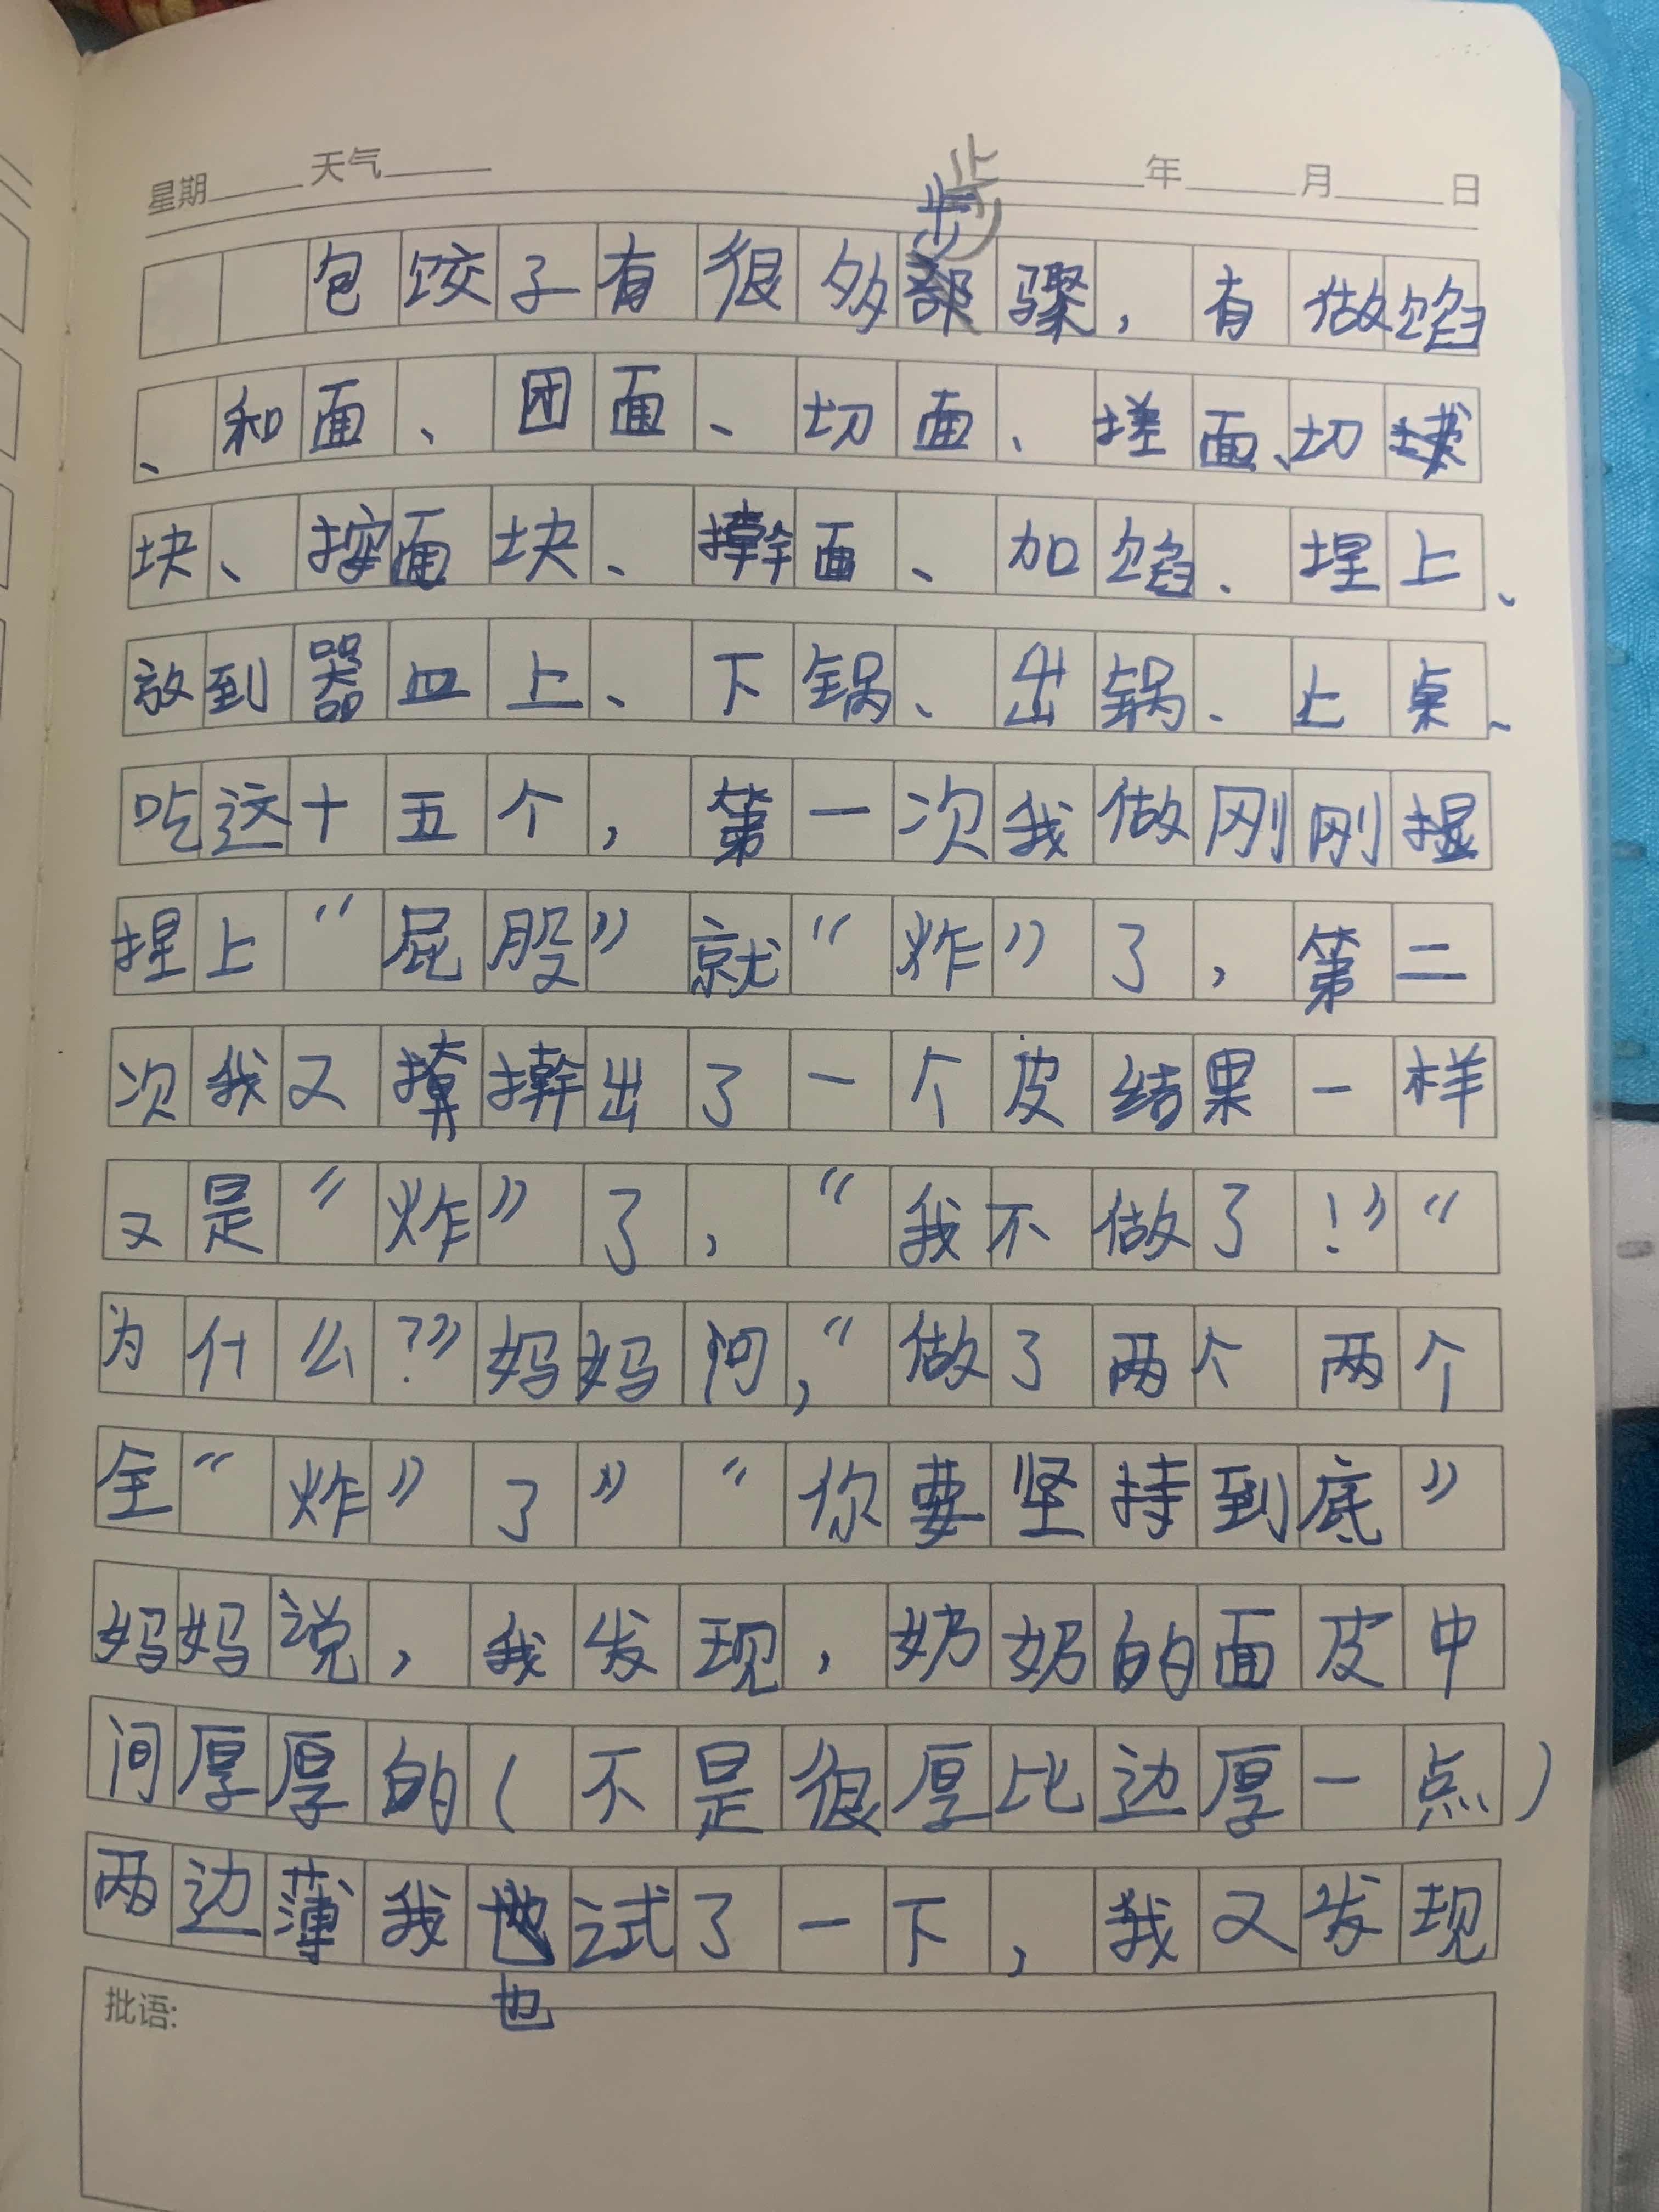 星期 天气 年 月 日
步
包饺子有很多骤，有做馅
、和面、团面、切面、搓面、切
块、按面块、擀面、加馅、捏上、
放到器皿上、下锅、出锅、上桌、
吃这十五个，第一次我做刚刚捏
捏上“屁股”就“炸”了，第二
次我又擀出了一个皮结果一样
又是“炸”了，“我不做了！”“
为什么？”妈妈问，“做了两个两个
全“炸”了”“你要坚持到底”
妈妈说，我发现，奶奶的面皮中
间厚厚的（不是很厚比边厚一点）
两边薄我试了一下，我又发现
也
批语: